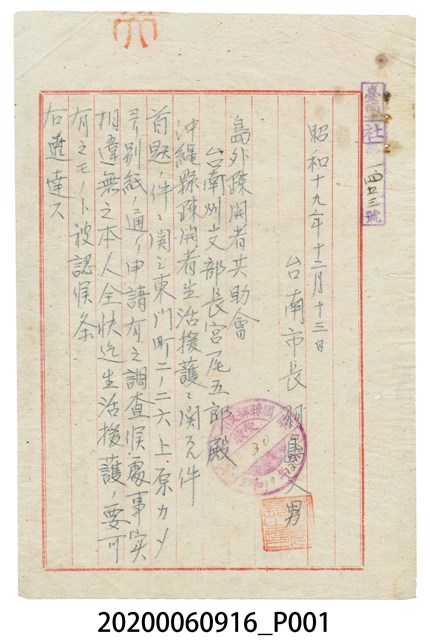 臺南社 一四五三號
昭和十九年十二月十三日
台南市長
島外疎開者共助會
台南州支部長宮尾五郎殿
沖縄縣疎開者生活援護ニ関スル件
首題ノ件ニ関シ東門町二ノ二六上原カメ
ヨリ別紙ノ通リ申請有之調査候處事実
相違無之本人全快迄生活援護ノ要可
有之モノト被認候条
右進達ス
20200060916_P001